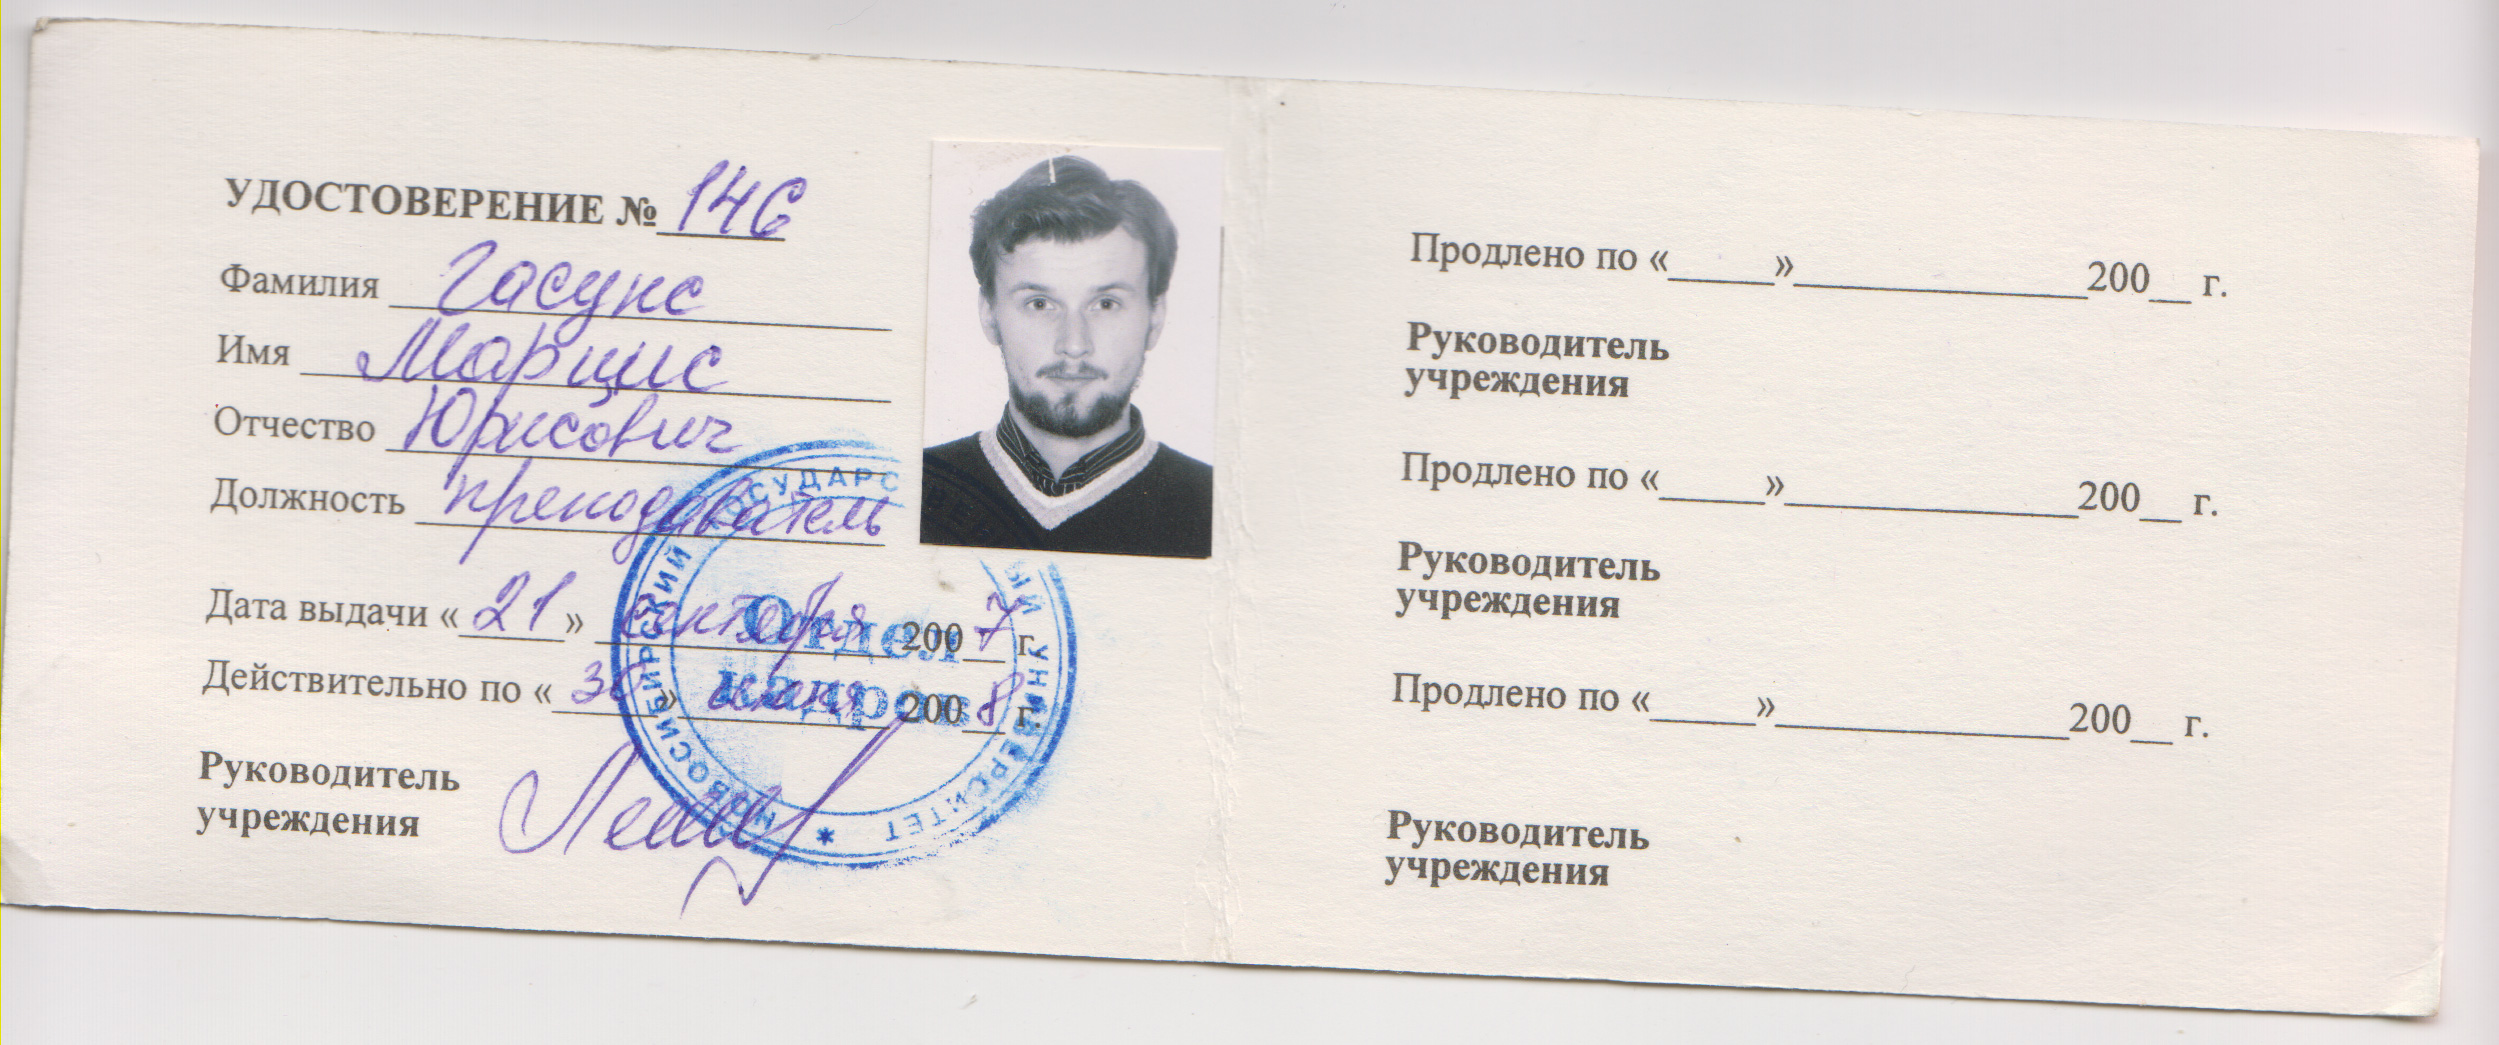 УДОСТОВЕРЕНИЕ № 146
Фамилия Гасунс
Имя Марцис
Отчество Юрисович
Должность преподаватель
Дата выдачи «21» сентября 2007 г.
Действительно по «30» июня 2008 г.
Руководитель
учреждения
НОВОСИБИРСКИЙ ГОСУДАРС ЫЙ УНИВЕРСИТЕТ
Отдел
кадров
Продлено по «_____»______________200__ г.
Руководитель
учреждения
Продлено по «_____»______________200__ г.
Руководитель
учреждения
Продлено по «_____»______________200__ г.
Руководитель
учреждения